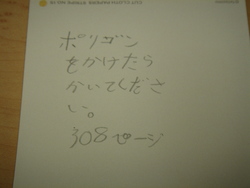 ポリゴン
をかけたら
かいてくださ
い。
308ページ